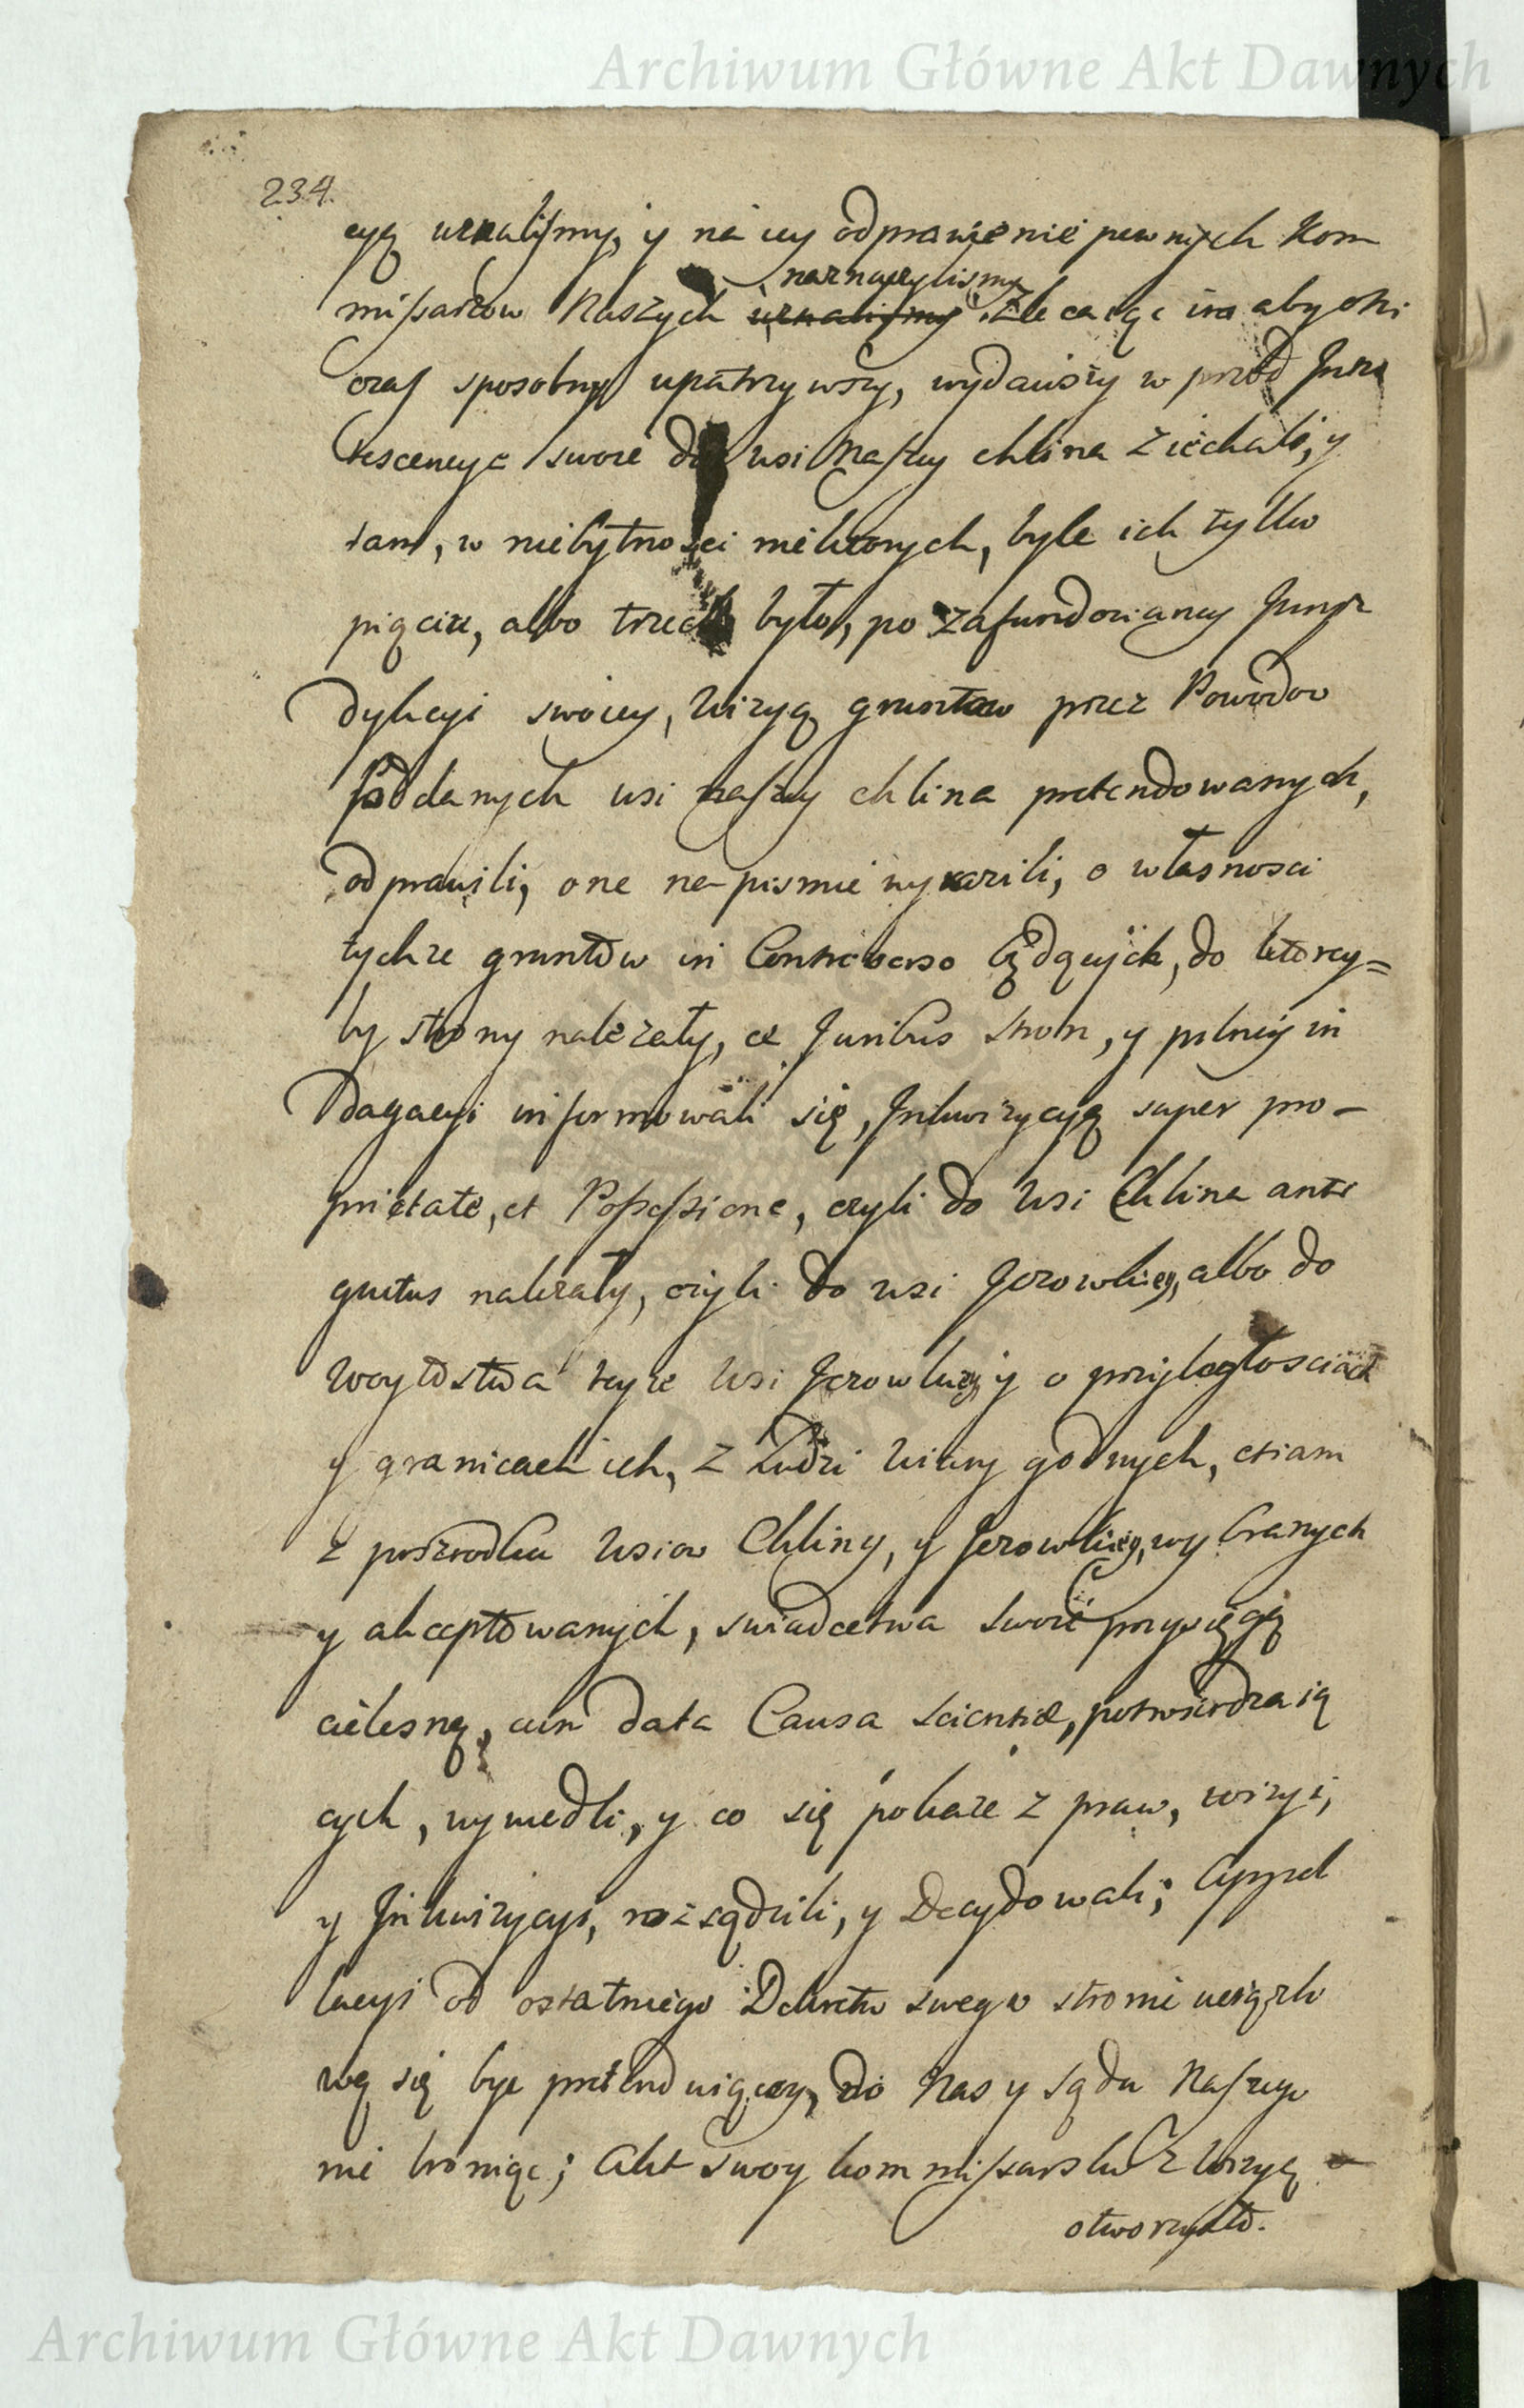 Archiwum Główne Akt Dawnych
234.
cyą uznalismy, y na iey odprawienie pewnych Kom
naznaczylismy
missarzow Naszych uznalismy zlecaiąc im aby oni
czas sposobny upatrzywszy, wydawszy w przod Inno
tescencye swoie do wsi Naszey Chlina ziechali, y
tam, w niebytnosci niektorych, byle ich tylko
pięciu, albo trzech było, po zafundowaney Jurys
dykcyi swoiey, wizyą gruntow przez Powodow
Poddanych wsi naszey Chlina pretendowanych,
odprawili, one na pismie wyrazili, o własnosci
tychze gruntow in Controverso będących, do ktorey=
by strony nalezały, ex Juribus stron, y pilney in
dagacyi informowali się, Inkwizycyą super pro-
prietate, et Possessione, czyli do wsi Chlina anti
quitus nalezały, czyli do wsi Jerowkiey, albo do
Woytostwa teyze wsi Jerowkiey y o przyległosciach
y granicach ich, z Ludzi wiary godnych, etiam
z poszrodku wsiow Chliny, y Jerowkiey, wybranych
y akceptowanych, swiadectwa swoie przysięgą
cielesną, cum data Causa scientiæ, potwierdzaią
cych, wywiedli, y co się pokaze z praw, wizyi,
y Inkwizycyi, rozsądzili, y Decydowali; Appel
lacyi od ostatniego Dekretu swego stronie uciązli
wą się byc pretenduiącey, do Nas y Sądu Naszego
nie broniąc; Akt swoy kommissarski z wizyą
otworzysto.
Archiwum Główne Akt Dawnych